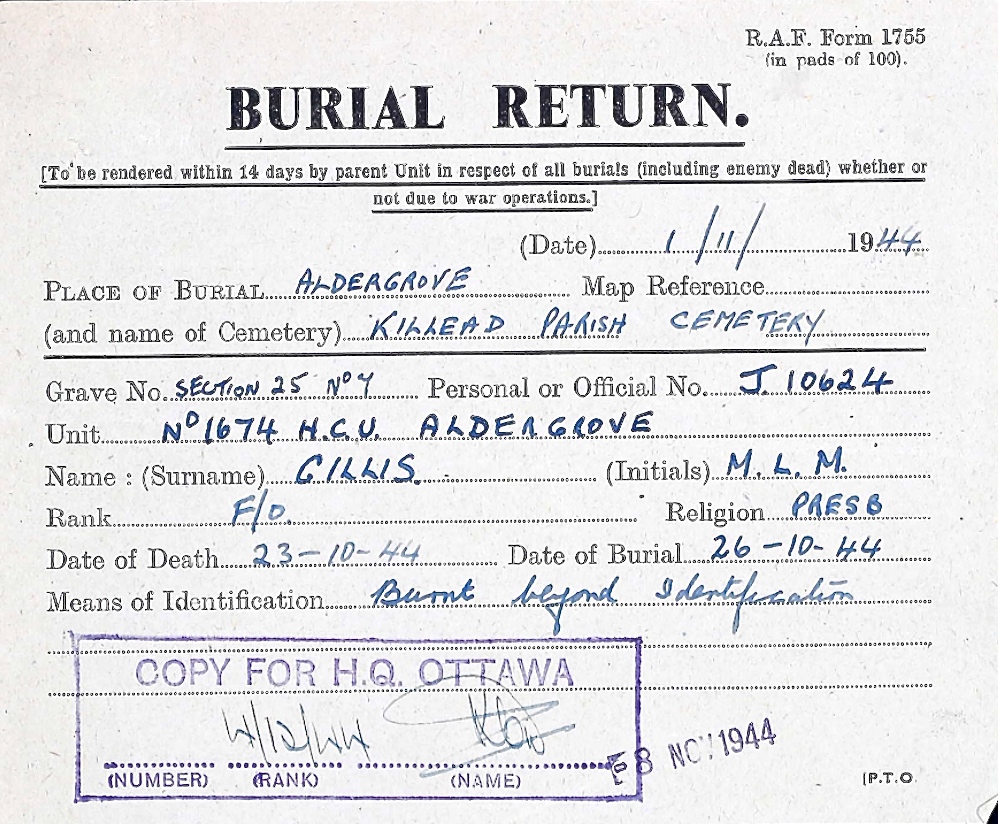 R.A.F. Form 1755
(in pads of 100).
BURIAL RETURN.
[To be rendered within 14 days by parent Unit in respect of all burials (including enemy dead) whether or
not due to war operations.]
(Date) 1/11/ 1944
PLACE OF BURIAL ALDERGROVE Map Reference
(and name of Cemetery) KILLEAD PARISH CEMETERY
Grave No. SECTION 25 No 7 Personal or Official No. J 10624
Unit No 1674 H.C.U. ALDERGROVE
Name : (Surname) GILLIS. (Initials) M. L. M.
Rank F/O. Religion PRESB
Date of Death 23-10-44 Date of Burial 26-10-44
Means of Identification Burnt beyond Identification
COPY FOR H.Q. OTTAWA
4/12/44
(NUMBER) (RANK) (NAME)
8 NOV 1944
[P.T.O.